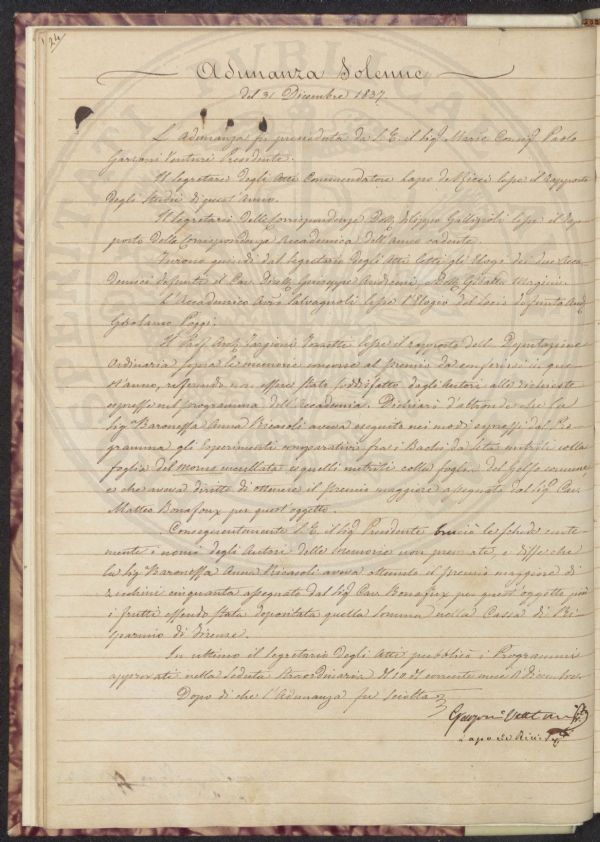 124
Adunanza Solenne
del 31 Dicembre 1837
L'Adunanza fu preseduta da S. E. il Sig. March. Consig. Paolo
Garzoni Venturi Presidente.
Il Segretario degli Atti Commendatore Lapo de Ricci lesse il Rapporto
degli Studii di quest'Anno.
Il Segretario delle Corrispondenze Dott. Filippo Gallizioli lesse il Rap-
porto della Corrispondenza Accademica dell'anno cadente.
Furono quindi dal Segretario degli Atti letti gli Elogi dei due Acca-
demici defunti il Cav. Giuseppe e Dott. Magini.
L'Accademico Avv. Salvagnoli lesse l'Elogio del Socio defunto Avv.
Girolamo Poggi.
Il Prof. Ant. Targioni Tozzetti lesse il rapporto della Deputazione
Ordinaria sopra le memorie concorse al premio da conferirsi in que-
st'anno, referendo non essere stato soddisfatto dagli Autori alle richieste
espresse nel programma dell'Accademia. Dichiarò d'altronde che la
Sig.ra Baronessa Anna Ricasoli aveva eseguito nei modi espressi dal Pro-
gramma gli esperimenti comparativi fra i Bachi da Seta nutriti colla
foglia del moro mucullata e quelli nutriti colla foglia del Gelso comune,
e che aveva diritto di ottenere il premio maggiore assegnato dal Sig. Cav.
Matteo Bonafoux per quest'oggetto.
Conseguentemente S. E. il Sig. Presidente bruciò le schede conte-
nenti i nomi degli Autori delle memorie non premiate, e disse che
la Sig.ra Baronessa Anna Ricasoli aveva ottenuto il premio maggiore di
zecchini cinquanta assegnato dal Sig. Cav. Bonafoux per quest'oggetto più
i frutti essendo stata depositata quella somma nella Cassa di Ri-
sparmio di Firenze.
In ultimo il Segretario degli Atti pubblicò i Programmi
approvati nella Seduta straordinaria del corrente mese di Dicembre.
Dopo di che l'Adunanza fu sciolta.
Garzoni Venturi
Lapo de Ricci